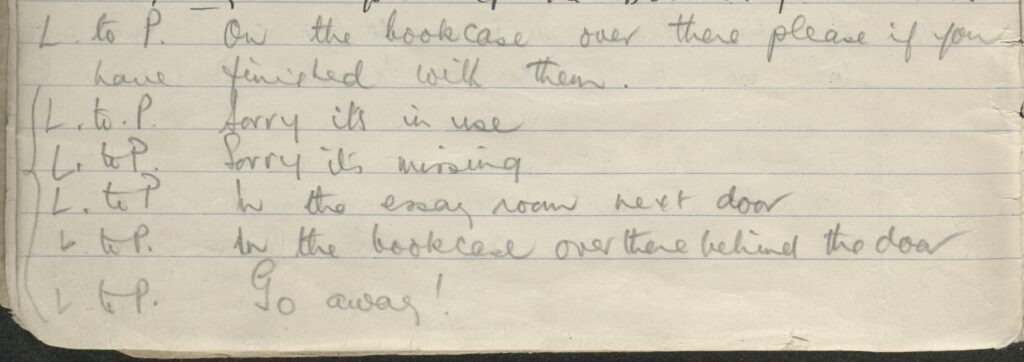 L. to P. On the bookcase over there please if you
have finished with them.
L. to. P. Sorry it's in use
L. to P. Sorry it's missing
L. to P In the essay room next door
L to P. In the bookcase over there behind the door
L to P. Go away!